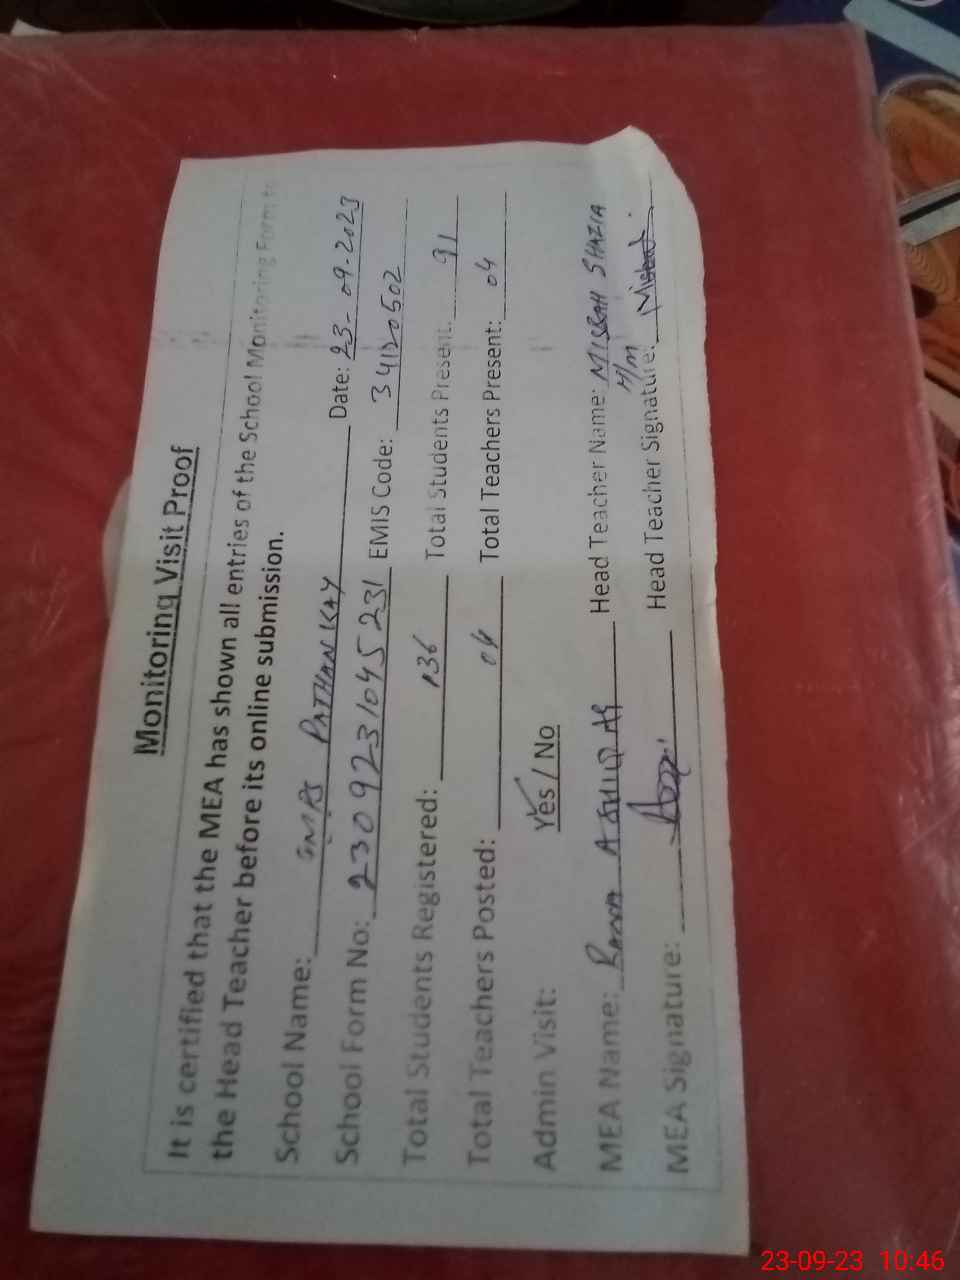 Monitoring Visit Proof
It is certified that the MEA has shown all entries of the School Monitoring Form to
the Head Teacher before its online submission.
School Name: GMPS PATHANKAY Date: 23-09-2023
School Form No: 2309231045231 EMIS Code: 34120502
Total Students Registered: 136 Total Students Present: 91
Total Teachers Posted: 04 Total Teachers Present: 04
Admin Visit: Yes / No
MEA Name: Rana Head Teacher Name: MISBAH SHAZIA
H/M
MEA Signature: Head Teacher Signature: Misbah
23-09-23 10:46